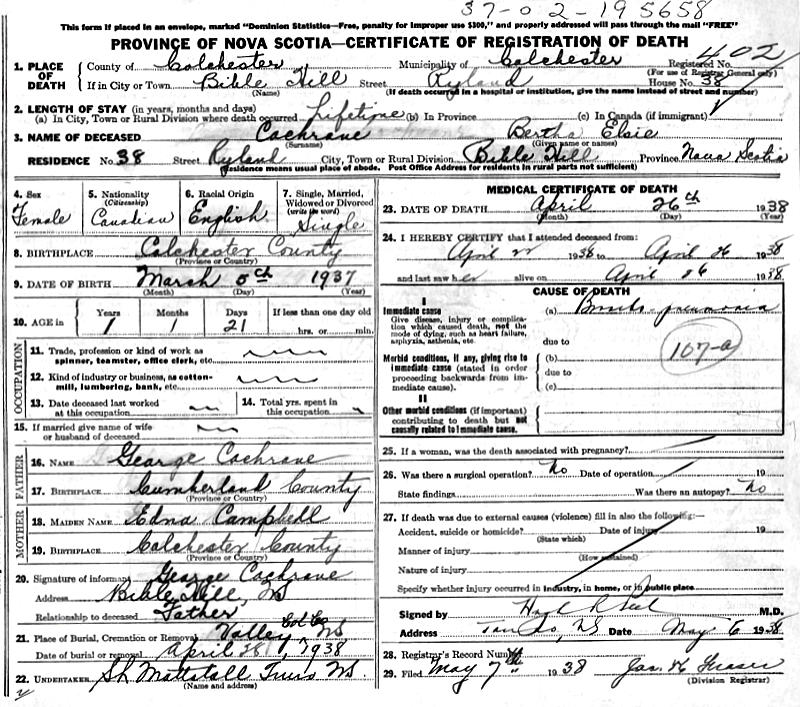 37-02-195658
This form if placed in an envelope, marked "Dominion Statistics—Free, penalty for improper use $300," and properly addressed will pass through the mail "FREE"
PROVINCE OF NOVA SCOTIA—CERTIFICATE OF REGISTRATION OF DEATH
1. PLACE OF DEATH County of Colchester Municipality of Colchester Registered No. 402
(For use of Registrar General only)
If in City or Town Bible Hill Street Ryland House No. 38
(Name) (If death occurred in a hospital or institution, give the name instead of street and number)
2. LENGTH OF STAY (in years, months and days)
(a) In City, Town or Rural Division where death occurred Lifetime (b) In Province (c) In Canada (if immigrant)
3. NAME OF DECEASED Cochrane Bertha Elsie
(Surname) (Given name or names)
RESIDENCE No. 38 Street Ryland City, Town or Rural Division Bible Hill Province Nova Scotia
(Residence means usual place of abode. Post Office Address for residents in rural parts not sufficient)
4. Sex Female
5. Nationality (Citizenship) Canadian
6. Racial Origin English
7. Single, Married, Widowed or Divorced (write the word) Single
8. BIRTHPLACE Colchester County
(Province or Country)
9. DATE OF BIRTH March 5th 1937
(Month) (Day) (Year)
10. AGE in Years 1 Months 1 Days 21 If less than one day old
hrs. or min.
OCCUPATION
11. Trade, profession or kind of work as spinner, teamster, office clerk, etc.
12. Kind of industry or business, as cotton-mill, lumbering, bank, etc.
13. Date deceased last worked at this occupation
14. Total yrs. spent in this occupation
15. If married give name of wife or husband of deceased
FATHER
16. NAME George Cochrane
17. BIRTHPLACE Cumberland County
(Province or Country)
MOTHER
18. MAIDEN NAME Edna Campbell
19. BIRTHPLACE Colchester County
(Province or Country)
20. Signature of informant George Cochrane
Address Bible Hill, NS
Relationship to deceased Father
21. Place of Burial, Cremation or Removal Valley Col Co NS
Date of burial or removal April 28, 1938
22. UNDERTAKER Mattatall Truro NS
(Name and address)
MEDICAL CERTIFICATE OF DEATH
23. DATE OF DEATH April 26th 1938
(Month) (Day) (Year)
24. I HEREBY CERTIFY that I attended deceased from:
April 22 1938 to April 26 1938
and last saw her alive on April 26 1938
CAUSE OF DEATH
I
Immediate cause
Give disease, injury or complication which caused death, not the mode of dying, such as heart failure, asphyxia, asthenia, etc.
(a) Broncho-pneumonia
due to
107-a
Morbid conditions, if any, giving rise to immediate cause (stated in order proceeding backwards from immediate cause).
(b)
due to
(c)
II
Other morbid conditions (if important) contributing to death but not causally related to immediate cause.
25. If a woman, was the death associated with pregnancy?
26. Was there a surgical operation? No Date of operation 19
State findings Was there an autopsy? No
27. If death was due to external causes (violence) fill in also the following:—
Accident, suicide or homicide? Date of injury 19
(State which)
Manner of injury
(How sustained)
Nature of injury
Specify whether injury occurred in industry, in home, or in public place
Signed by M.D.
Address Truro, NS Date May 6 1938
28. Registrar's Record Number
29. Filed May 7th 1938 Jas. H. Fraser
(Division Registrar)